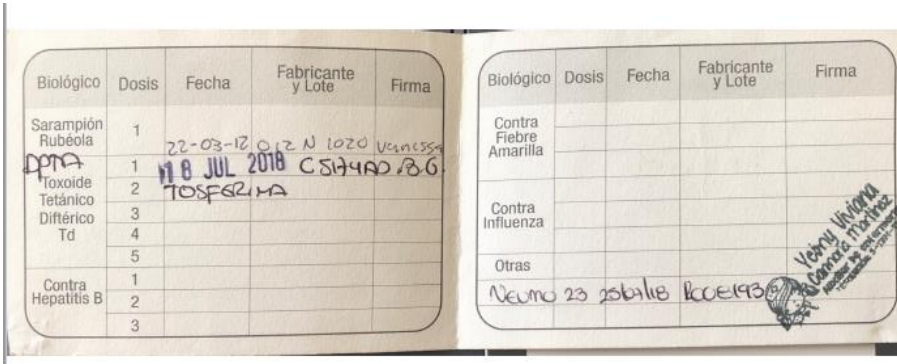 Biológico Dosis Fecha Fabricante y Lote Firma
Sarampión Rubéola 1 22-03-12 012 N 1020 Vanessa
Toxoide Tetánico Diftérico Td
1 18 JUL 2018
2 TOSFERINA
3
4
5
Contra Hepatitis B
1
2
3
Biológico Dosis Fecha Fabricante y Lote Firma
Contra Fiebre Amarilla
Contra Influenza
Otras
Neumo 23
Yeimy Viviana